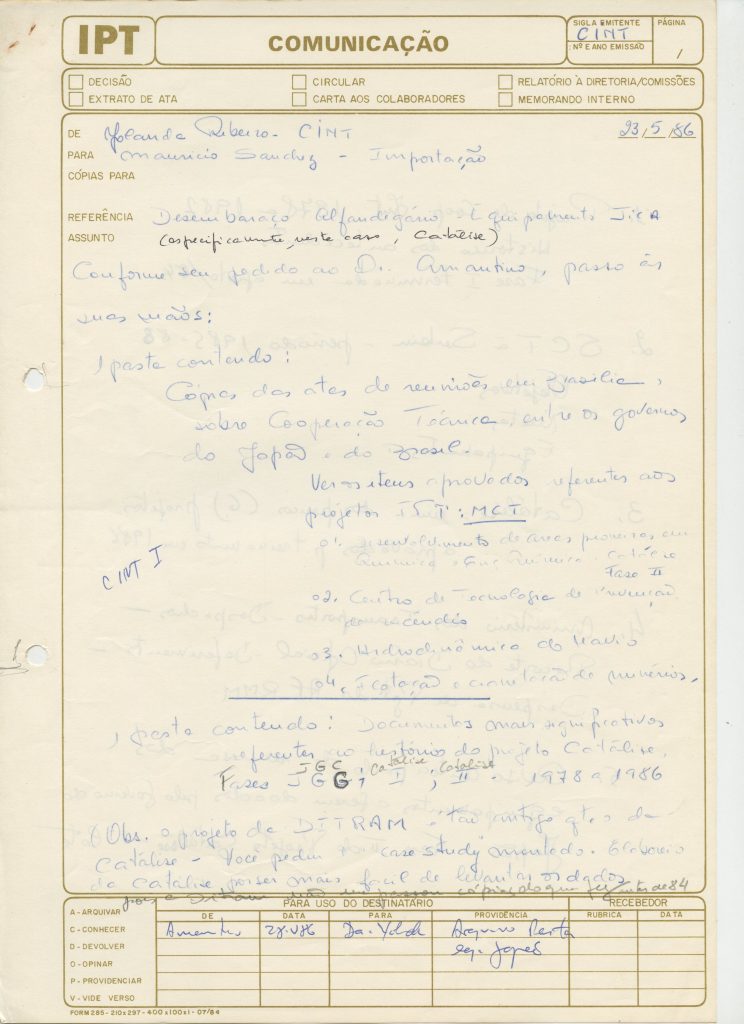 IPT
COMUNICAÇÃO
SIGLA EMITENTE
CINT
Nº E ANO EMISSÃO
PÁGINA
1
DECISÃO
CIRCULAR
RELATÓRIO À DIRETORIA/COMISSÕES
EXTRATO DE ATA
CARTA AOS COLABORADORES
MEMORANDO INTERNO
DE Yolanda Ribeiro - CINT
23/5/86
PARA Mauricio Sanchez - Importação
CÓPIAS PARA
REFERÊNCIA Desembaraço Alfandegário Equipamento JICA
ASSUNTO (especificamente, neste caso, Catálise)
Conforme seu pedido ao Dr. Amantino, passo às
suas mãos:
1 pasta contendo:
Cópias das atas de reuniões em Brasília,
sobre Cooperação Técnica, entre os governos
do Japão e do Brasil.
Ver os itens aprovados referentes aos
projetos IPT: MCT
01. Desenvolvimento de áreas pioneiras em
Química e Eng. Química. Catálise
Fase II
CINT I
02. Centro de Tecnologia de Prevenção
03. Hidrodinâmica do Navio
04. Flotação e cianetação de minérios.
1 pasta contendo: Documentos mais significativos
referentes ao histórico do projeto Catálise,
JGC Catálise Catálise
Fases JGG; I; II - 1978 a 1986
(Obs. o projeto da DITRAM é tão antigo qto o da
Catálise - Você pediu 1 "case study" montado. Elaborei
da Catálise por ser mais fácil de levantar os dados
pois a Ditram não me passou cópias do que fez antes de 84
PARA USO DO DESTINATÁRIO
RECEBEDOR
DE
DATA
PARA
PROVIDÊNCIA
RUBRICA
DATA
A - ARQUIVAR
C - CONHECER
Amantino 28.V.86 Da. Yolanda Arquivo Pasta
D - DEVOLVER
O - OPINAR
P - PROVIDENCIAR
V - VIDE VERSO
FORM 285 - 210x297 - 400x100x1 - 07/84